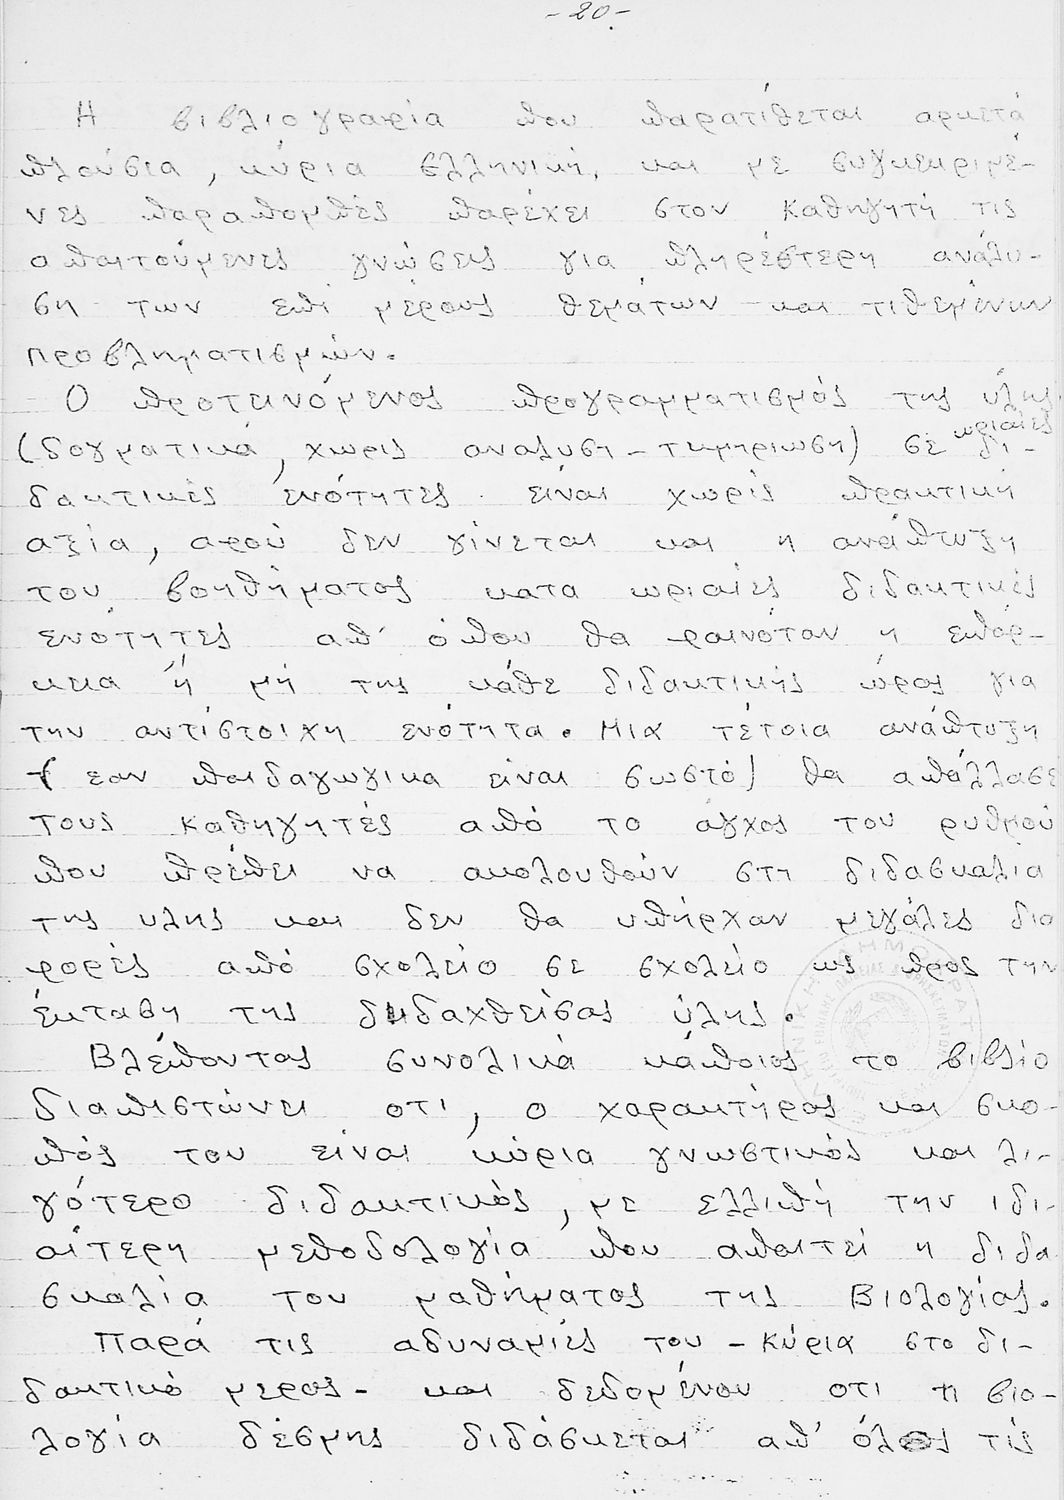 - 20 -
Η βιβλιογραφία που παρατίθεται αρκετά
πλούσια, κύρια ελληνική, και με συγκεκριμέ-
νες παραπομπές παρέχει στον καθηγητή τις
απαιτούμενες γνώσεις για πληρέστερη ανάλυ-
ση των επί μέρους θεμάτων και τιθεμένων
προβληματισμών.
Ο προτεινόμενος προγραμματισμός της ύλης
(δογματικά, χωρίς αναλυση-τεκμηριωση) σε ωριαίες δι-
δακτικές ενότητες είναι χωρίς πρακτική
αξία, αφού δεν γίνεται και η ανάπτυξη
του βοηθήματος κατα ωριαίες διδακτικές
ενότητες απ' όπου θα φαινόταν η επάρ-
κεια ή μή της κάθε διδακτικής ώρας για
την αντίστοιχη ενότητα. Μια τέτοια ανάπτυξη
(εαν παιδαγωγικα είναι σωστό) θα απάλλασε
τους καθηγητές από το άγχος του ρυθμού
που πρέπει να ακολουθούν στη διδασκαλία
της υλης και δεν θα υπήρχαν μεγάλες δια
φορές από σχολείο σε σχολείο ως προς την
έκταση της διδαχθείσας ύλης.
Βλέποντας συνολικά κάποιος το βιβλίο
διαπιστώνει οτι, ο χαρακτήρας και σκο-
πός του είναι κύρια γνωστικός και λι-
γότερο διδακτικός, με ελλιπή την ιδι-
αίτερη μεθοδολογία που απαιτεί η διδα
σκαλία του μαθήματος της Βιολογίας.
Παρά τις αδυναμίες του - κύρια στο δι-
δακτικό μερος - και δεδομένου οτι η βιο-
λογία δέσμης διδάσκεται απ' όλες τίς